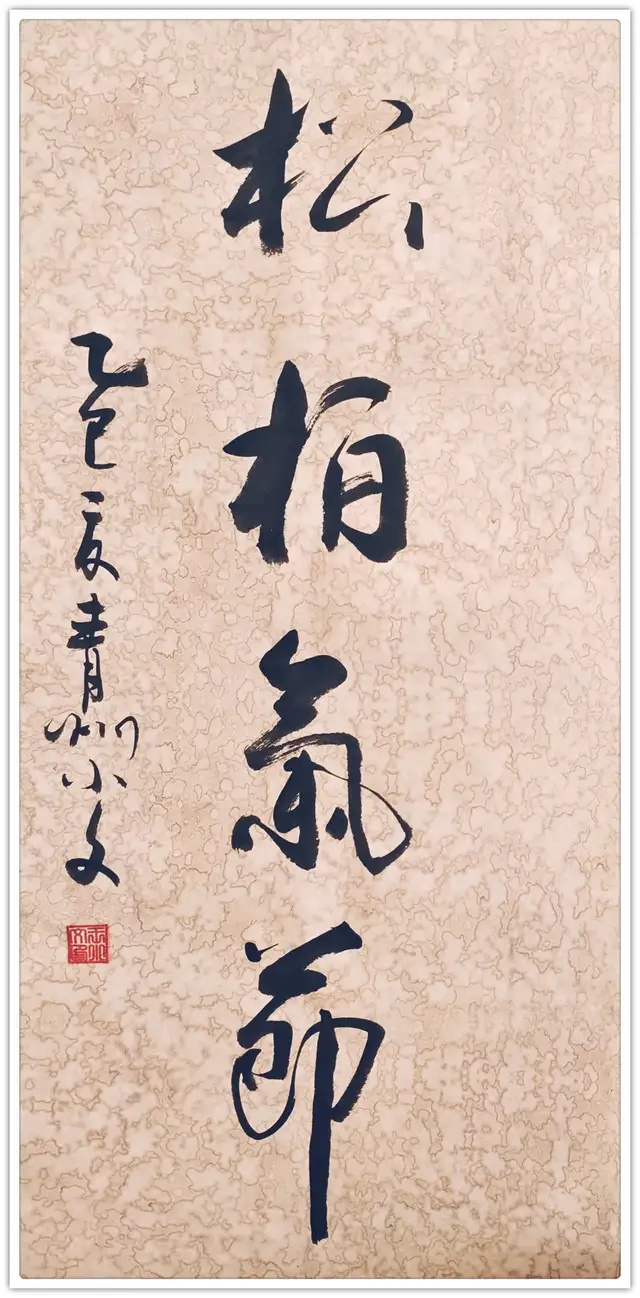 松柏氣節
乙巳夏青州小文